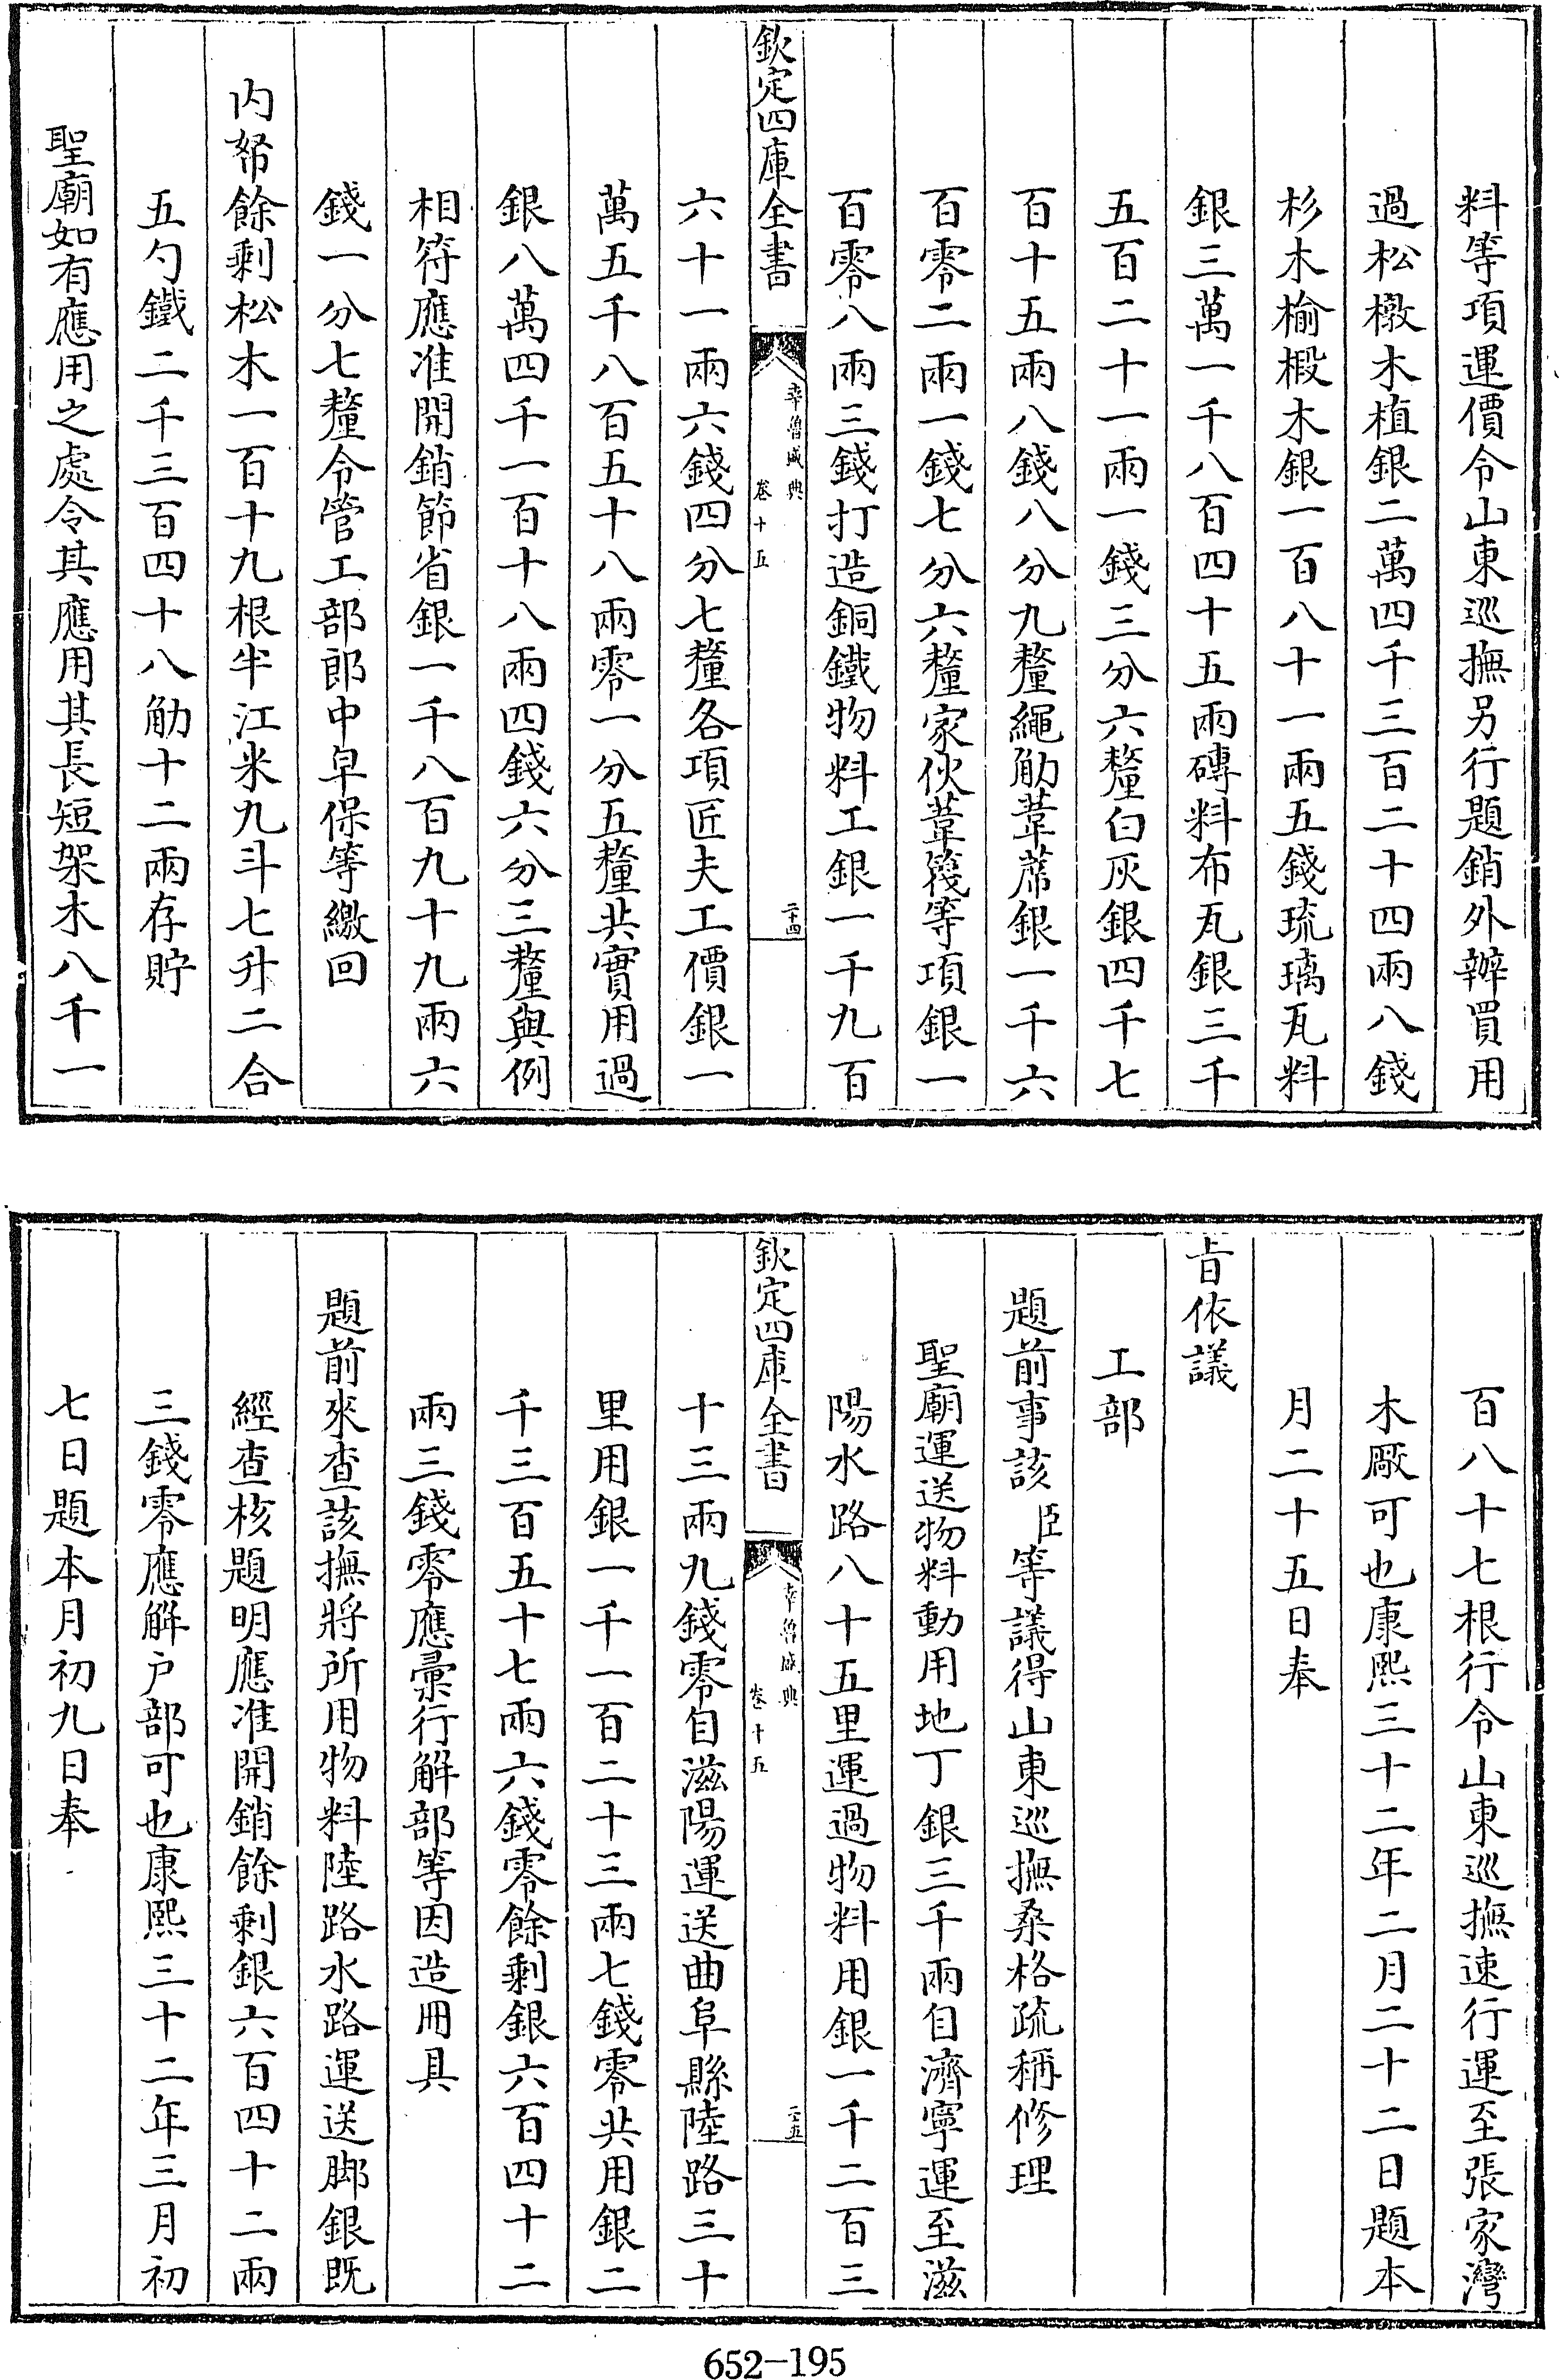 料等項運價令山東巡撫另行題銷外辦買用
過松橔木植銀二萬四千三百二十四兩八錢
杉木榆椴木銀一百八十一兩五錢琉璃瓦料
銀三萬一千八百四十五兩磚料布瓦銀三千
五百二十一兩一錢三分六釐白灰銀四千七
百十五兩八錢八分九釐繩觔葦蓆銀一千六
百零二兩一錢七分六釐家伙葦篾等項銀一
百零八兩三錢打造銅鐵物料工銀一千九百
欽定四庫全書
幸魯盛典
卷十五
二十四
六十一兩六錢四分七釐各項匠夫工價銀一
萬五千八百五十八兩零一分五釐共實用過
銀八萬四千一百十八兩四錢六分三釐與例
相符應准開銷節省銀一千八百九十九兩六
錢一分七釐令管工部郎中皁保等繳回
內帑餘剩松木一百十九根半江米九斗七升二合
五勺鐵二千三百四十八觔十二兩存貯
聖廟如有應用之處令其應用其長短架木八千一
百八十七根行令山東巡撫速行運至張家灣
木廠可也康熙三十二年二月二十二日題本
月二十五日奉
旨依議
工部
題前事該臣等議得山東巡撫桑格疏稱修理
聖廟運送物料動用地丁銀三千兩自濟寧運至滋
陽水路八十五里運過物料用銀一千二百三
欽定四庫全書
幸魯盛典
卷十五
二十五
十三兩九錢零自滋陽運送曲阜縣陸路三十
里用銀一千一百二十三兩七錢零共用銀二
千三百五十七兩六錢零餘剩銀六百四十二
兩三錢零應彙行解部等因造冊具
題前來查該撫將所用物料陸路水路運送脚銀既
經查核題明應准開銷餘剩銀六百四十二兩
三錢零應解户部可也康熙三十二年三月初
七日題本月初九日奉
652-195